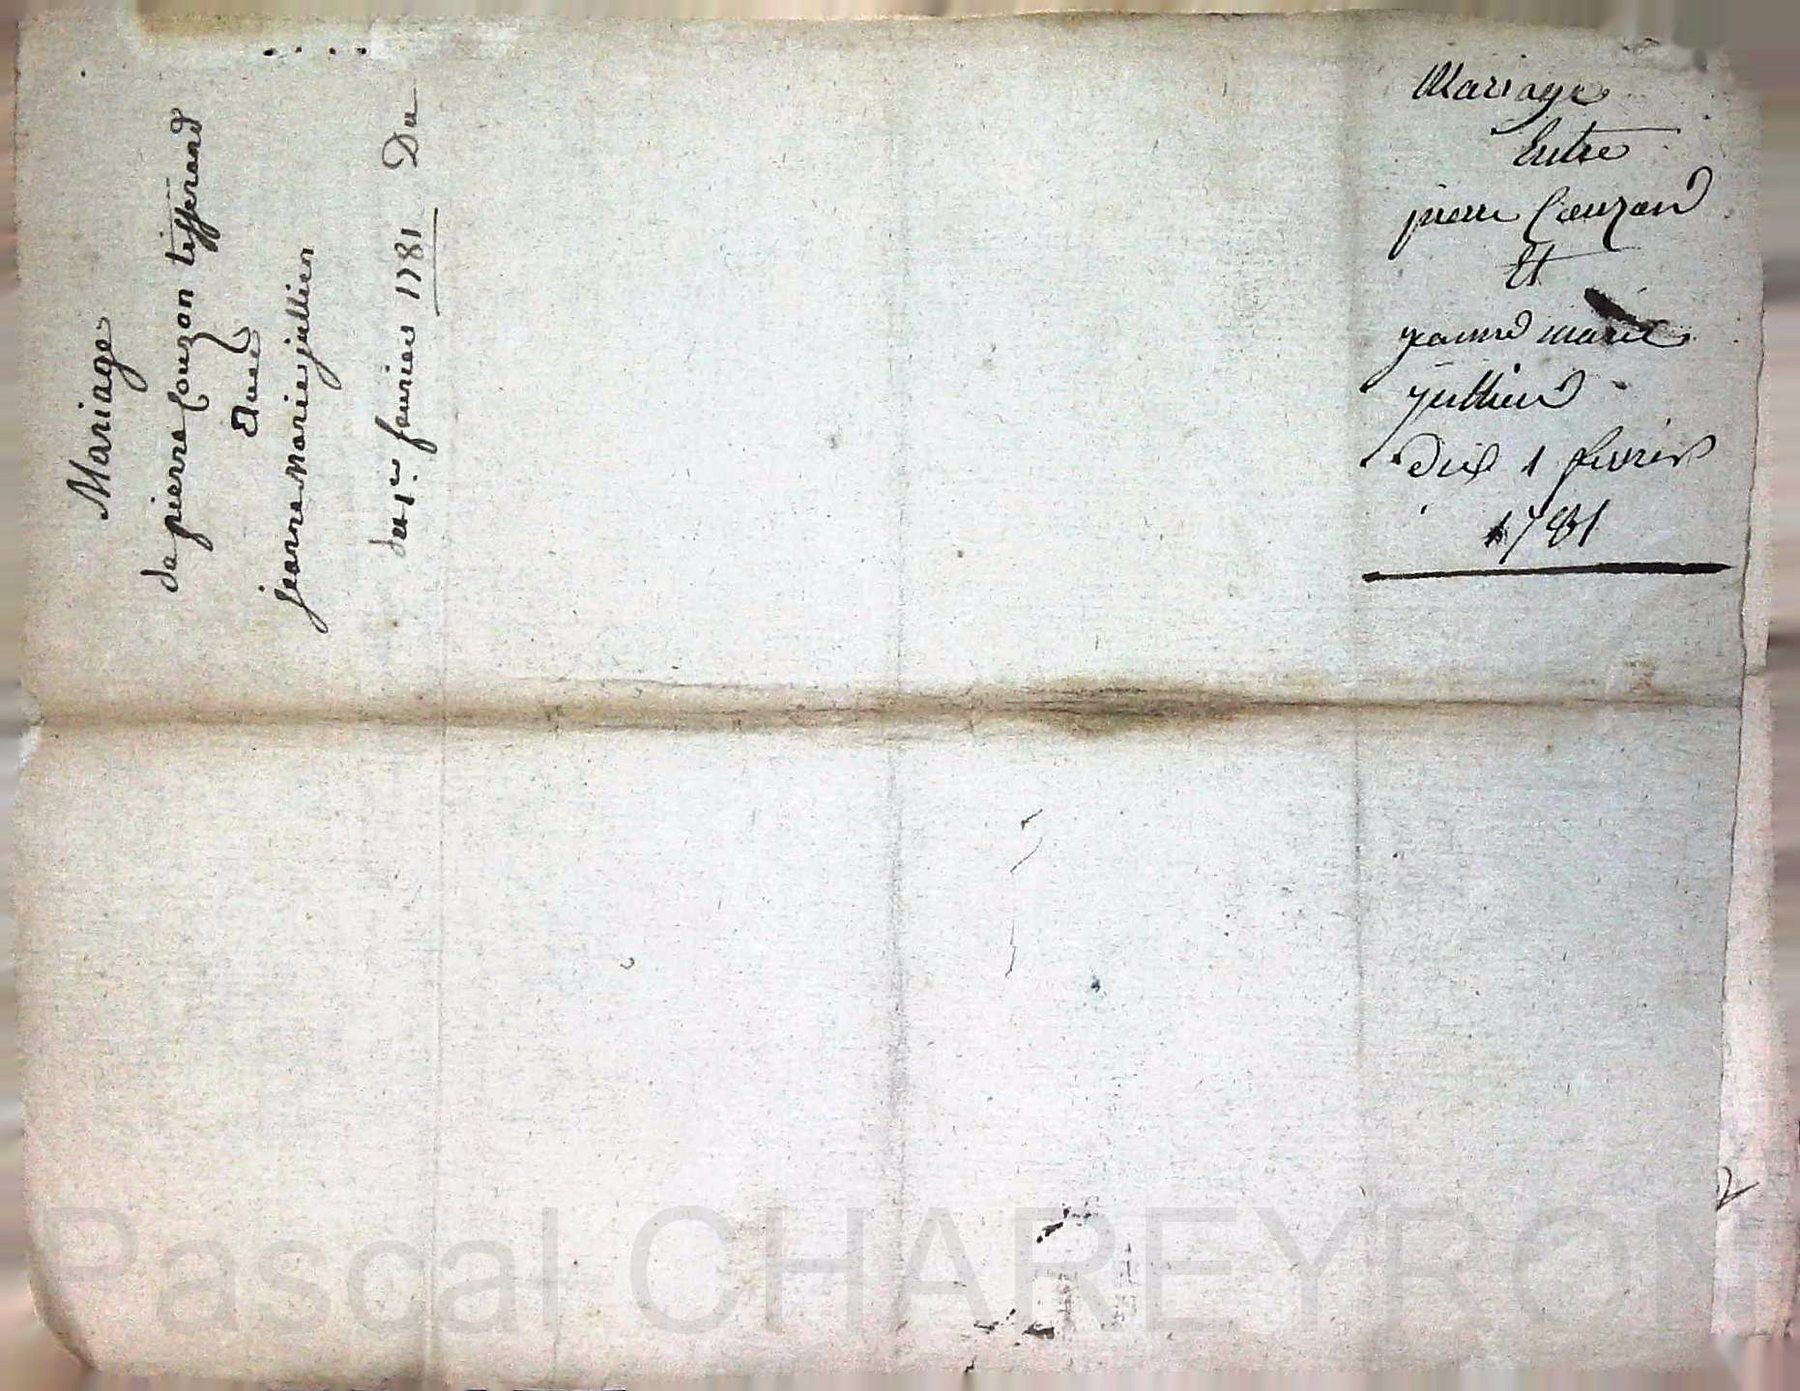 Mariage
de pierre Couzon tifferand
Avec
jeanne Marie jullien
du 1er. fevrier 1781 Du
Mariage
Entre
pierre Couzon
Et
jeanne marie
jullien
du 1 fevrier
1781
2
Pascal CHAREYRON